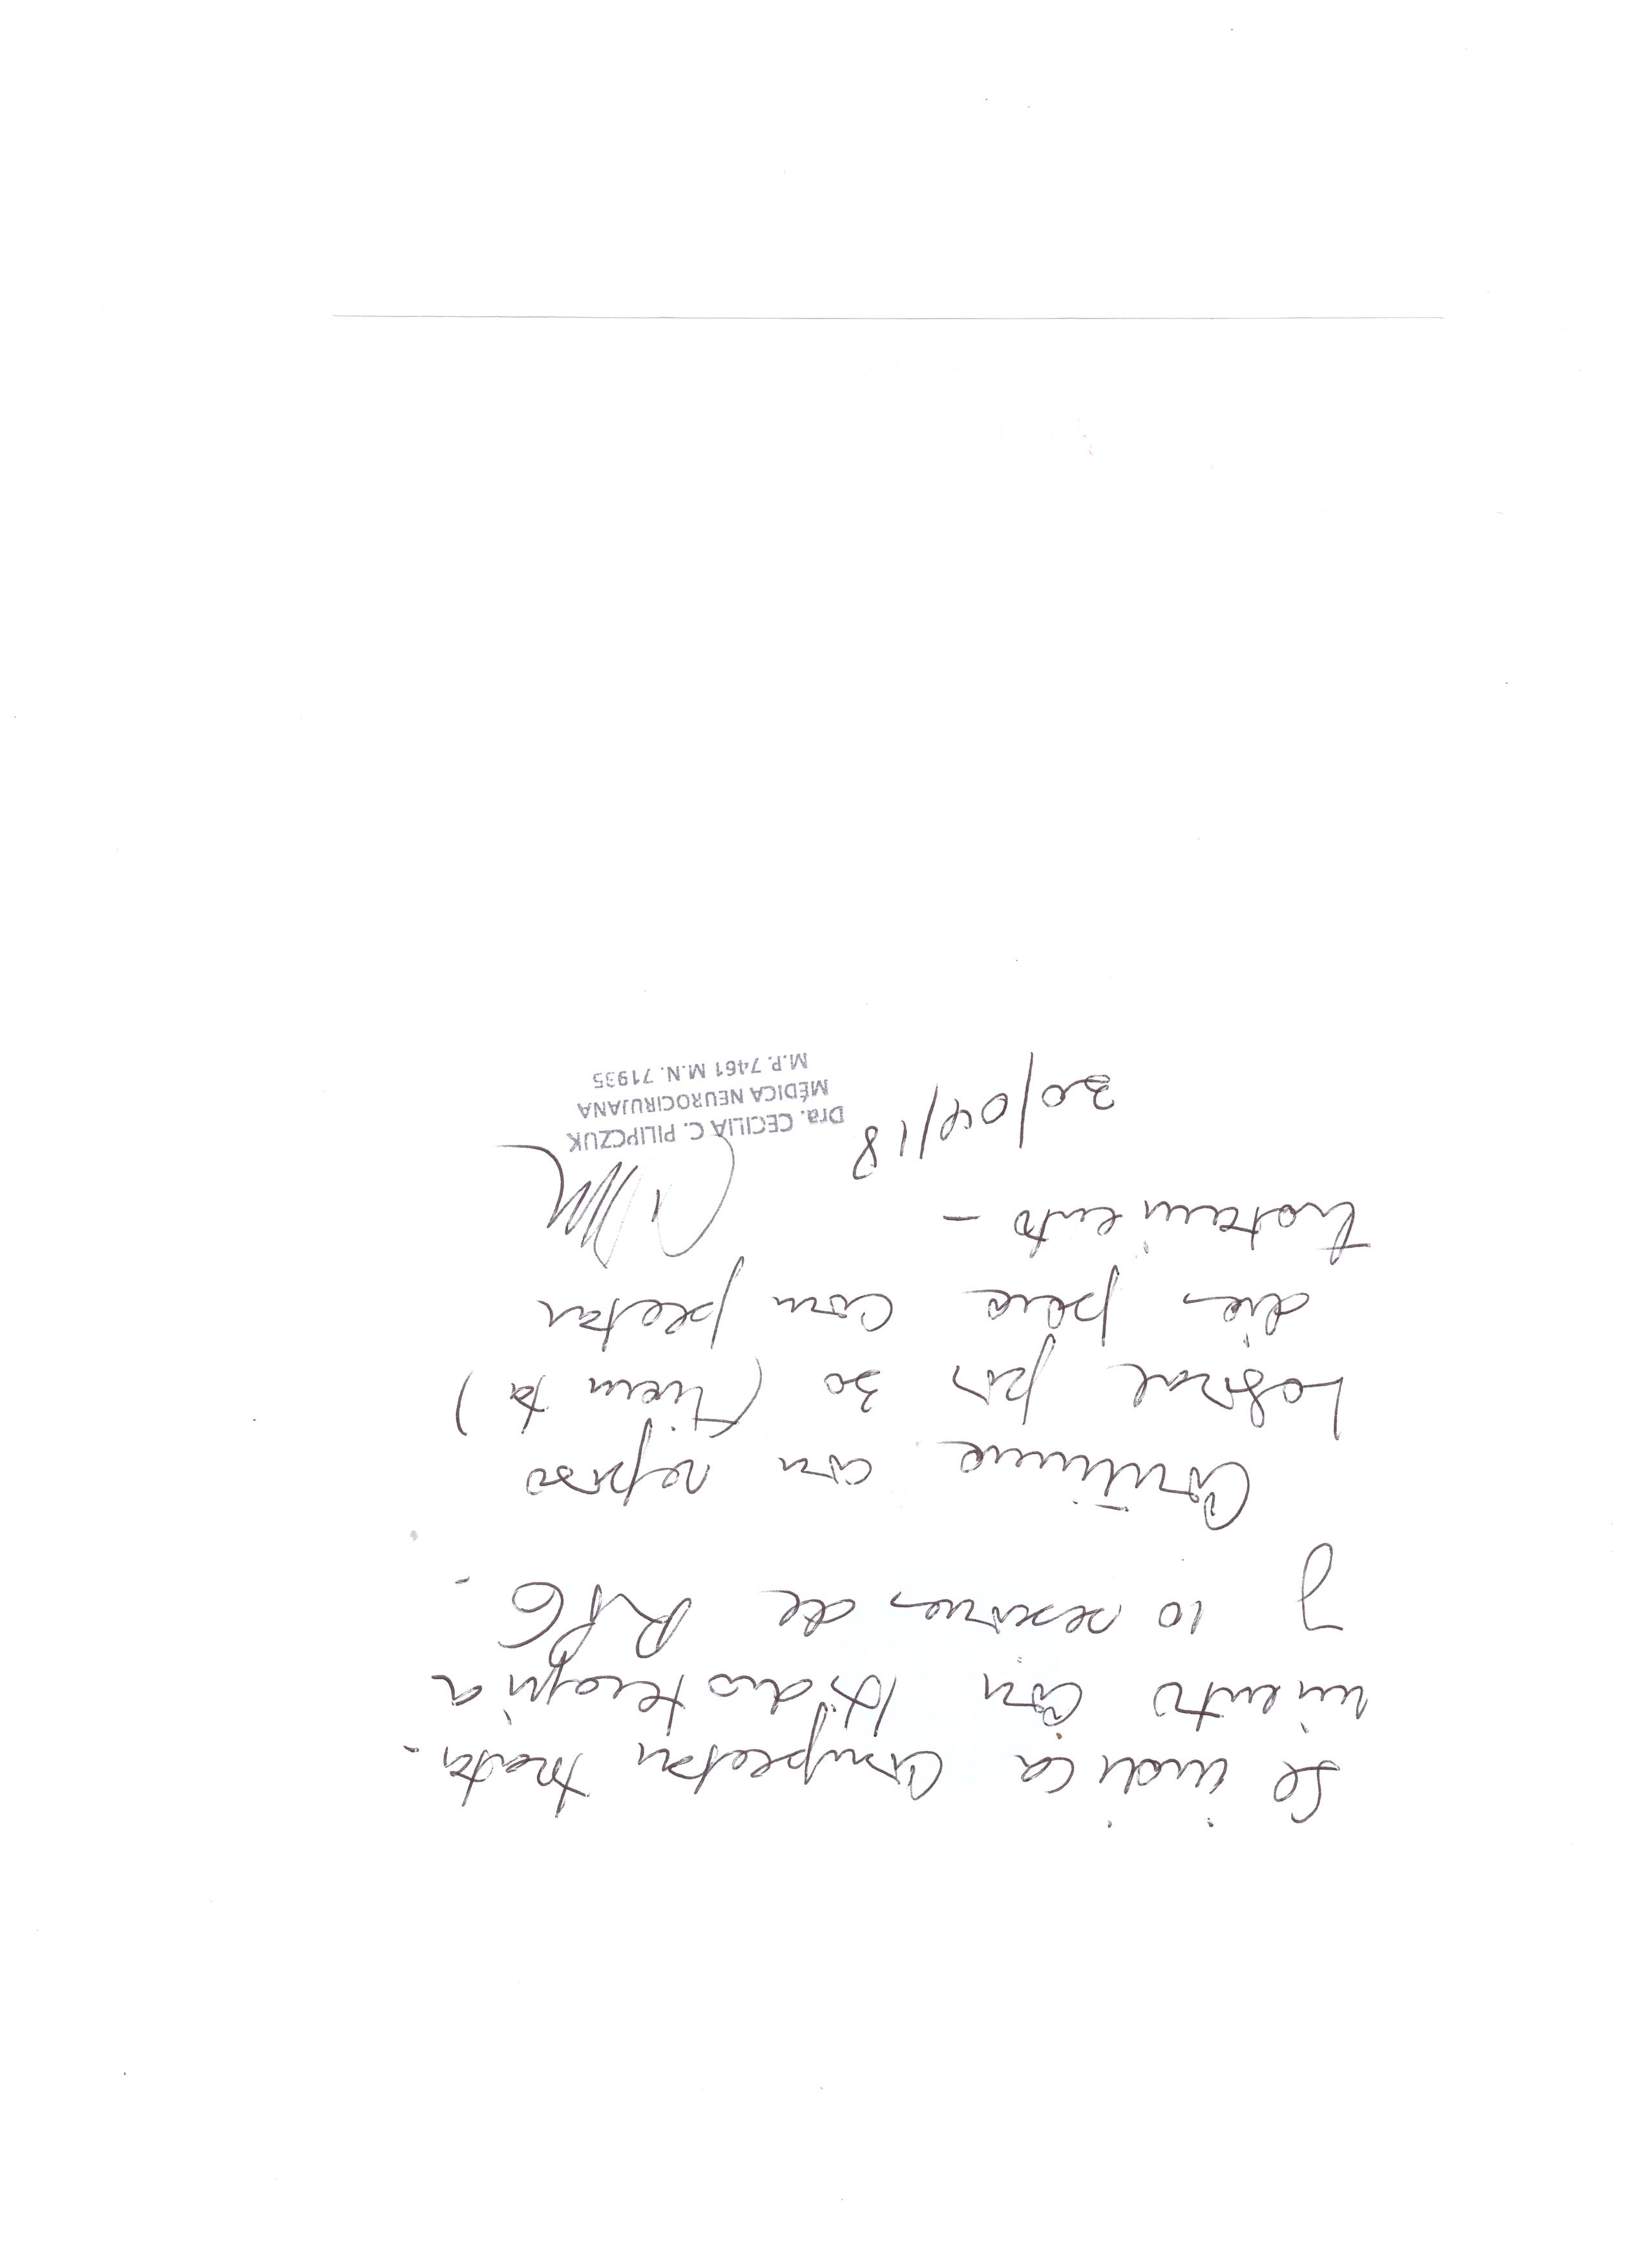 Se indica completar trata-
miento con hidroterapia
y 10 sesiones de RPG.
Continue con reposo
laboral por 30 (treinta)
dias para completar
tratamiento -
30/04/18
Dra. CECILIA C. PILIPCZUK
MÉDICA NEUROCIRUJANA
M.P. 7461 M.N. 71935